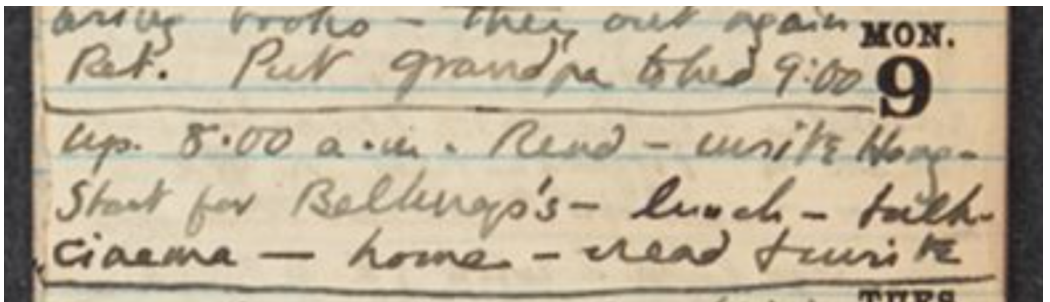 books – they out again
MON.
Ret. Put grandpa to bed 9:00
9
up. 8.00 a.m. Read – write
Start for – lunch – talk –
cinema – home – read & write
TUES.